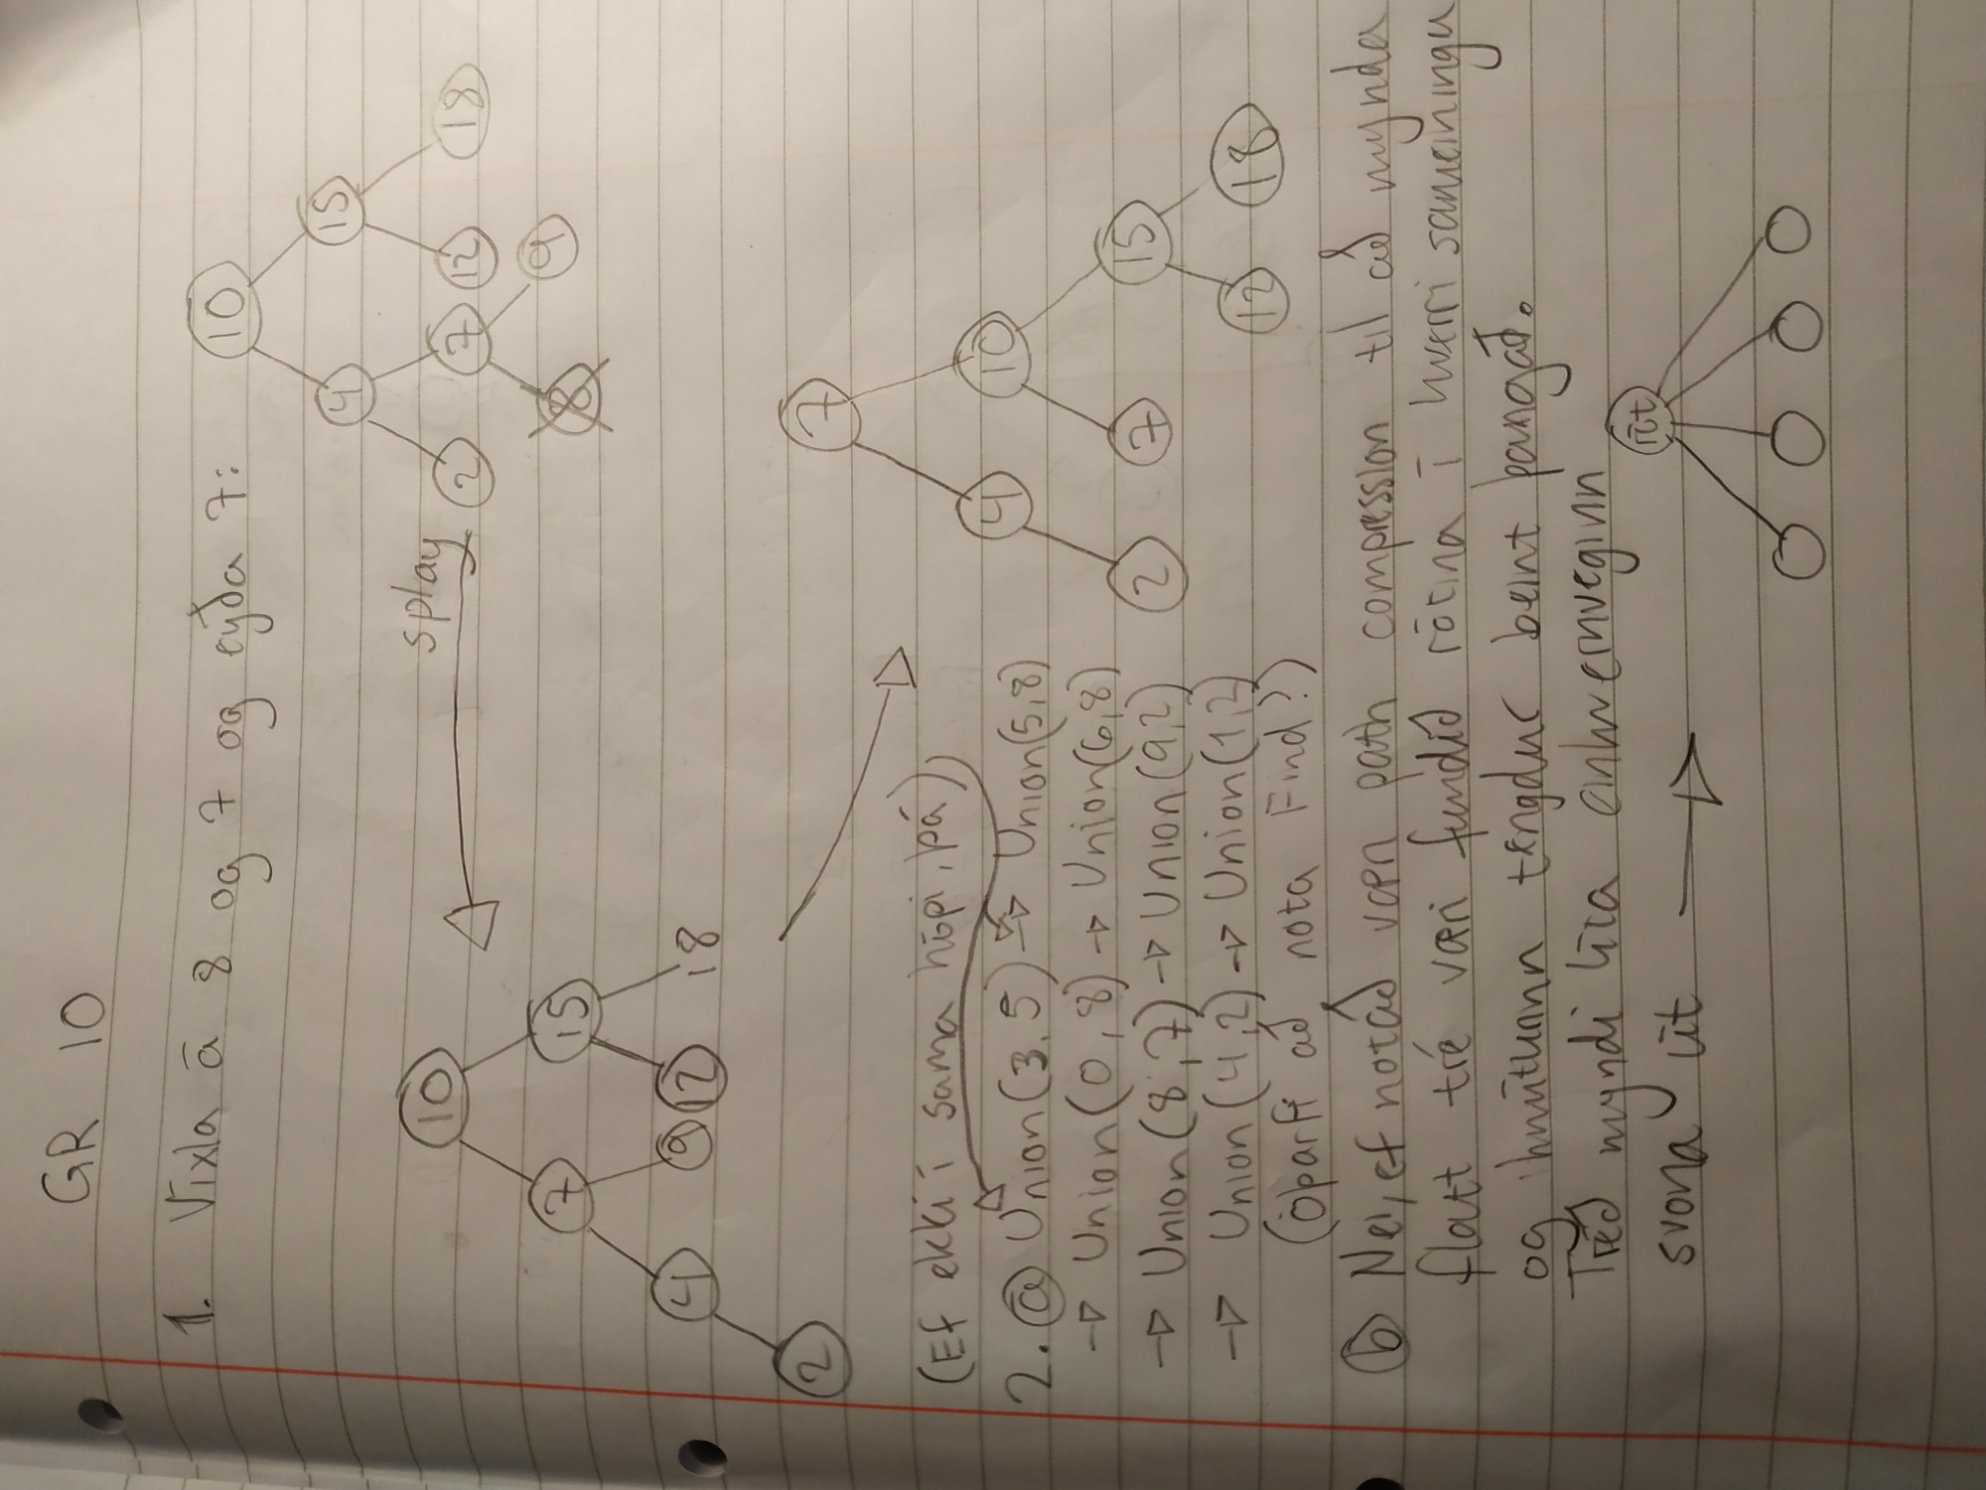 GR 10
1. Víxla á 8 og 7 og eyða 7:
10
4 15
2 7 12 18
8 9
splay
10
7 15
4 9 12 18
2
7
4 10
2 7 15
12 18
(Ef ekki í sama hópi, þá)
2. a Union(3,5) → Union(5,8)
→ Union(0,8) → Union(6,8)
→ Union(8,7) → Union(9,2)
→ Union(4,2) → Union(1,2)
(óþarfi að nota Find?)
b Nei, ef notað væri path compression til að mynda
flatt tré væri fundið rótina í hverri sameiningu
og hnúturinn tengdur beint þangað.
Tréð myndi líta einhvernveginn
svona út
rót